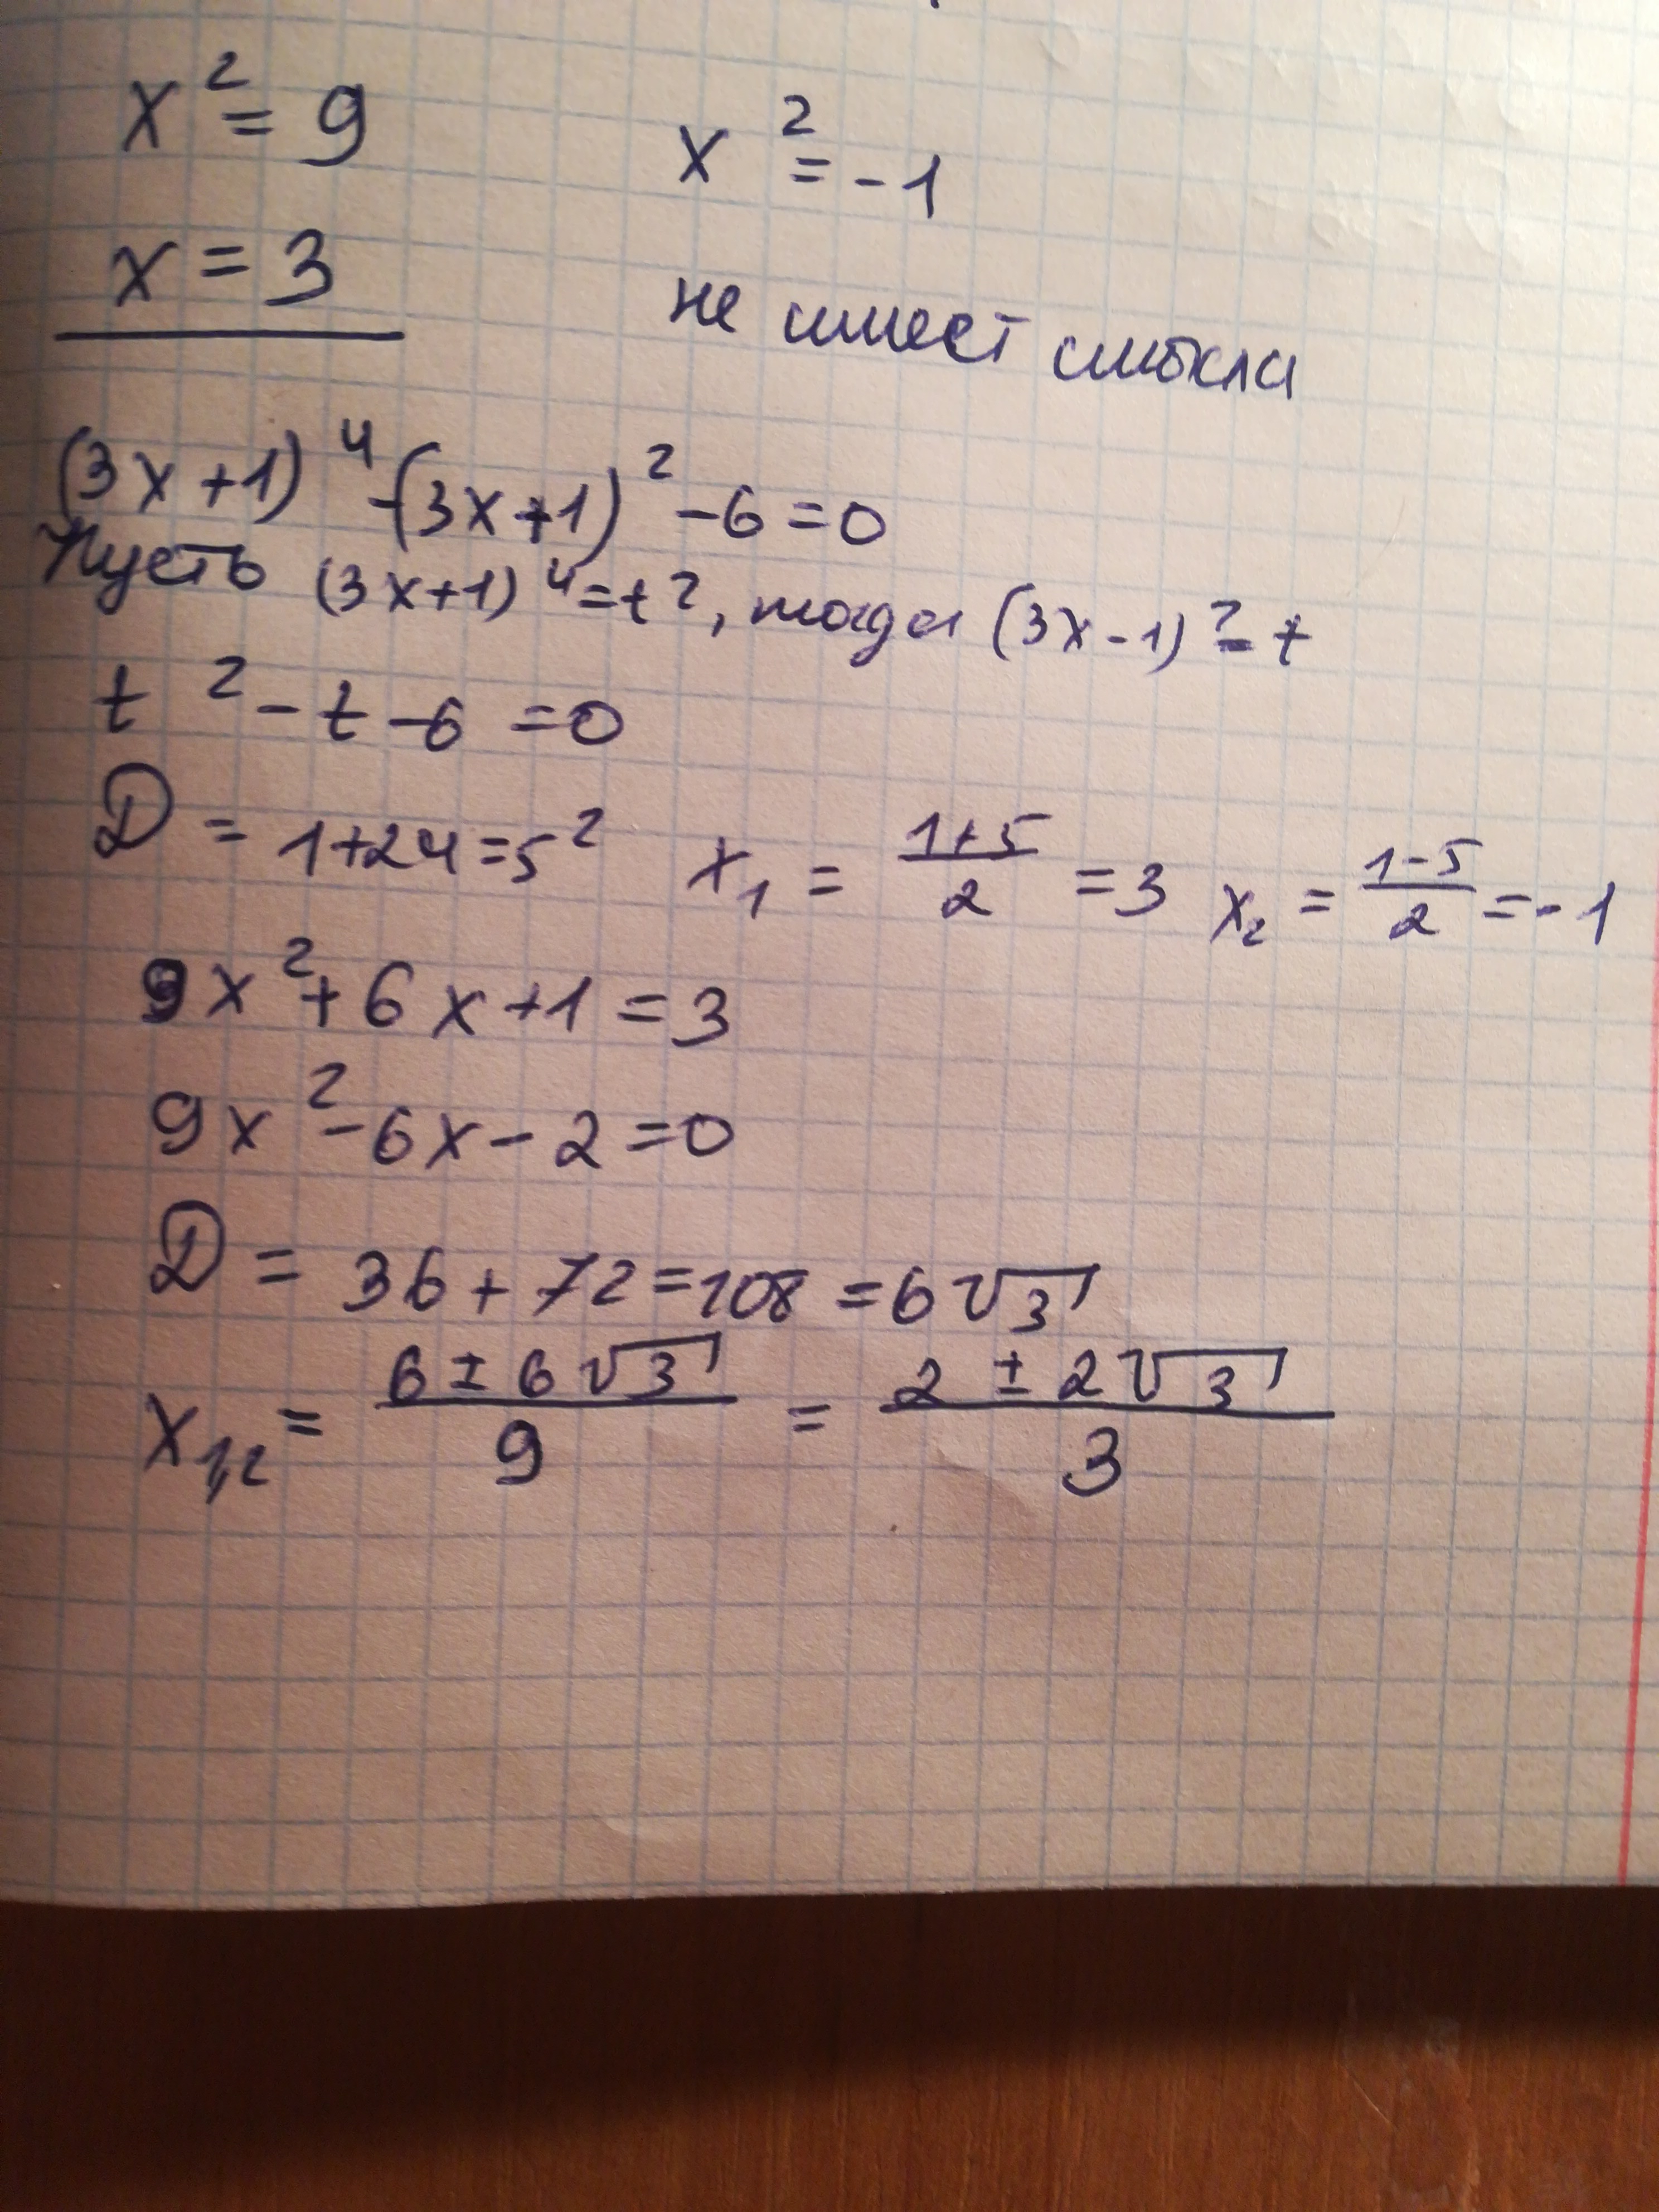 x² = 9
x² = -1
x = 3
не имеет смысла
(3x+1)⁴-(3x+1)²-6=0
Пусть (3x+1)⁴=t², тогда (3x-1)²=t
t²-t-6=0
D = 1+24=5² x₁ = (1+5)/2 =3 x₂ = (1-5)/2 =-1
9x²+6x+1=3
9x²-6x-2=0
D = 36+72=108=6√3
x₁,₂ = (6±6√3)/9 = (2±2√3)/3